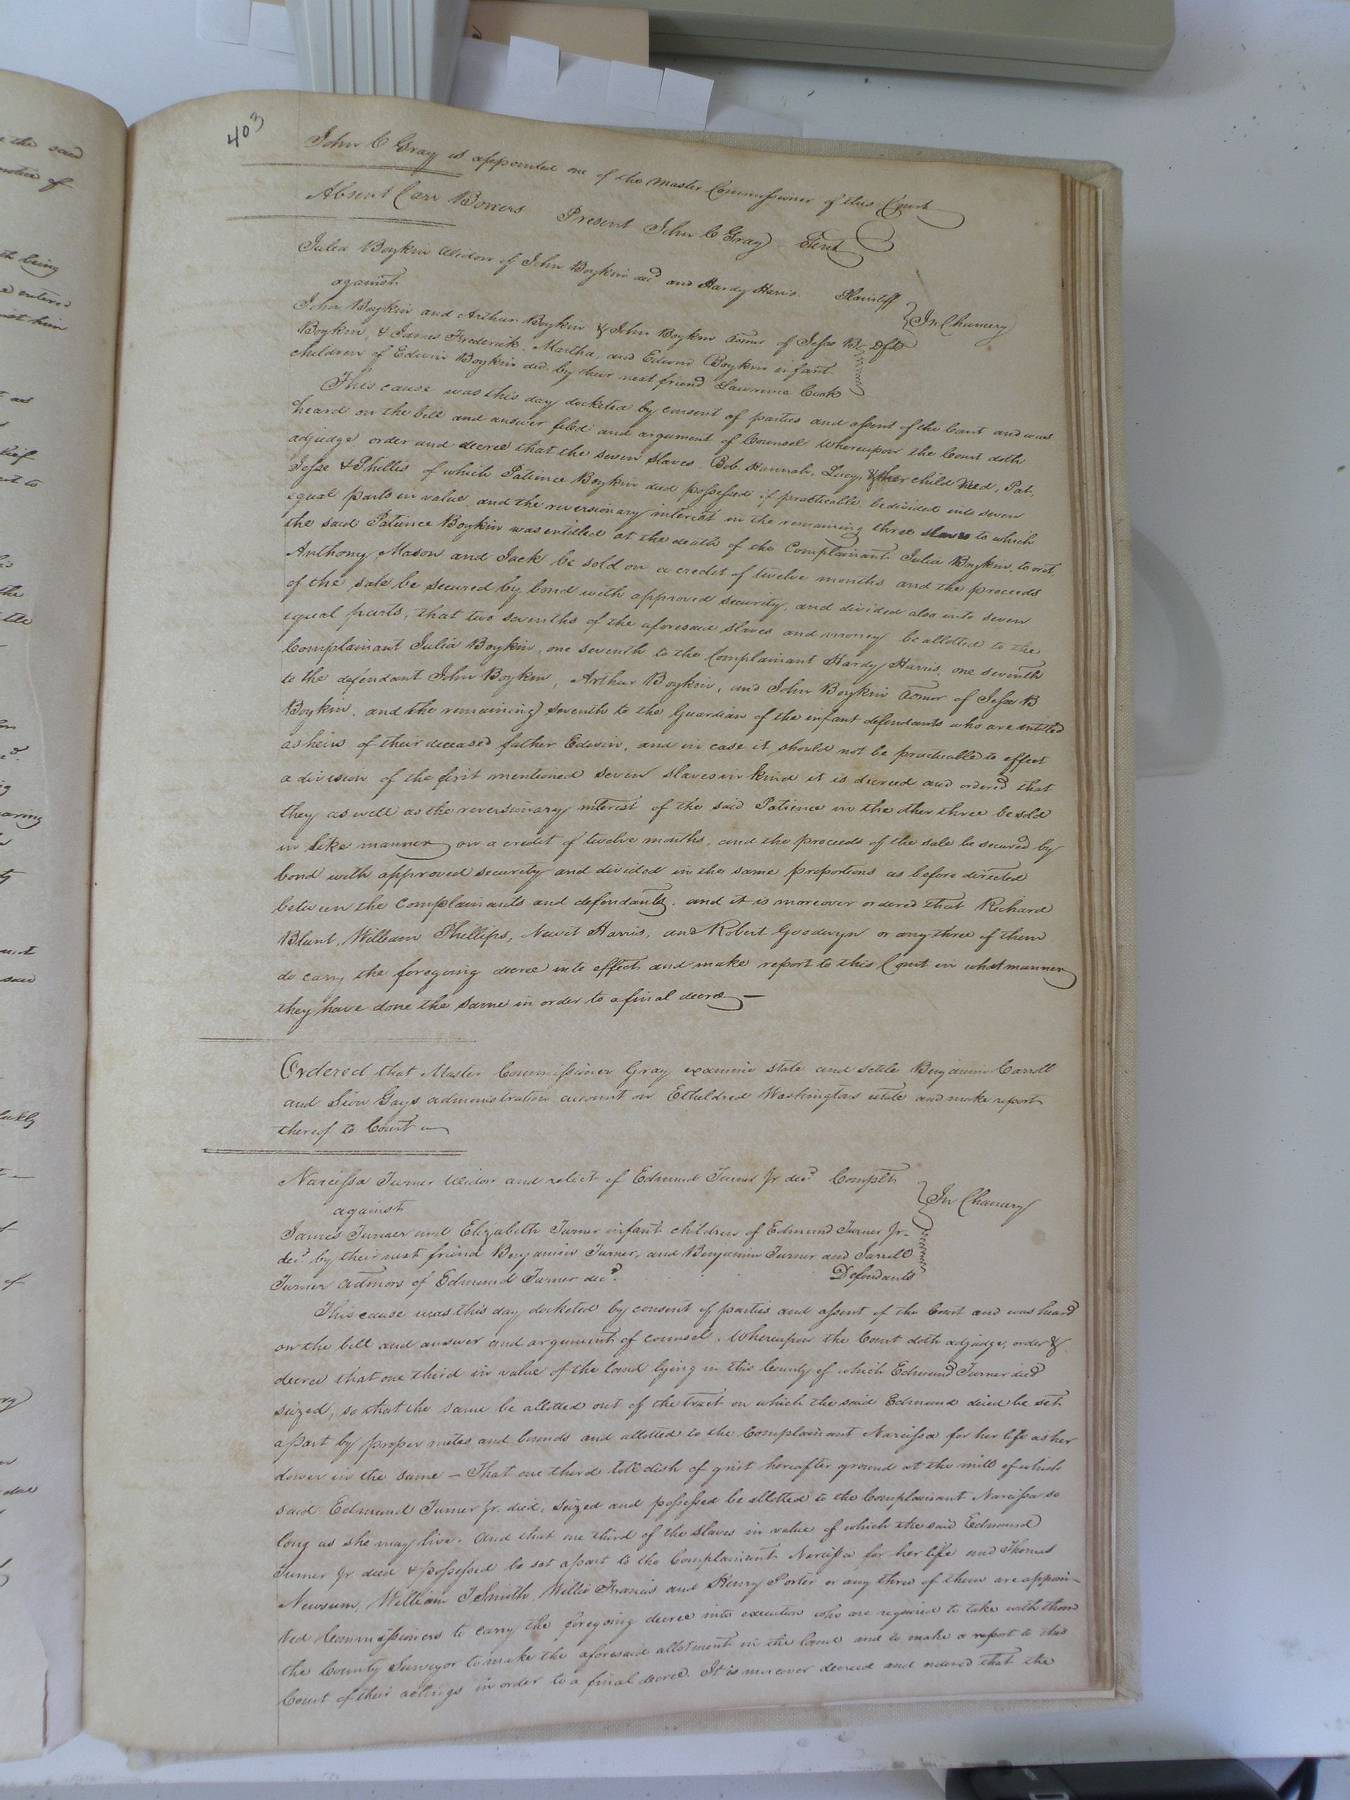 403
John C Gray is appointed one of the Master Commissioner of this Court
Absent Carr Bowers Present John C Gray Gent
Julia Boykin Widow of John Boykin decd and Hardy Harris Plaintiff
against
In Chancery
John Boykin and Arthur Boykin & John Boykin admr of Jesse B Defts
Boykin, & James Frederick, Martha, and Edwin Boykin infant
children of Edwin Boykin decd by their next friend Lawrence Cook
This cause was this day docketed by consent of parties and assent of the Court and was
heard on the bill and answer filed and argument of Counsel Whereupon the Court doth
adjudge order and decree that the seven slaves, Bob, Hannah, Lucy, & her child Ned, Pat,
Jesse & Phillis of which Patience Boykin died possessed if practicable be divided into seven
equal parts in value and the reversionary interest in the remaining three slaves to which
the said Patience Boykin was entitled at the death of the Complainant Julia Boykin, to wit,
Anthony, Mason and Jack be sold on a credit of twelve months and the proceeds
of the sale be secured by bond with approved security, and divided also into seven
equal parts, that two sevenths of the aforesaid slaves and money be allotted to the
Complainant Julia Boykin, one seventh to the Complainant Hardy Harris, one seventh
to the defendant John Boykin, Arthur Boykin, and John Boykin admr of Jesse B
Boykin, and the remaining seventh to the Guardian of the infant defendants who are entitled
as heirs of their deceased father Edwin, and in case it should not be practicable to effect
a division of the first mentioned seven slaves in kind it is decreed and ordered that
they as well as the reversionary interest of the said Patience in the other three be sold
in like manner on a credit of twelve months, and the proceeds of the sale be secured by
bond with approved security and divided in the same proportions as before directed
between the Complainants and defendants. and it is moreover ordered that Richard
Blunt, William Phillips, Newit Harris, and Robert Goodwyn or any three of them
do carry the foregoing decree into effect and make report to this Court in what manner
they have done the same in order to a final decree —
Ordered that Master Commissioner Gray examine state and settle Benjamin Carroll
and Sion Gays administration account on Etheldred Washingtons estate and make report
thereof to Court
Narcissa Turner Widow and relict of Edmund Turner Jr decd Complt
against
In Chancery
James Turner and Elizabeth Turner infant children of Edmund Turner Jr
decd by their next friend Benjamin Turner, and Benjamin Turner and Jarrell
Turner admors of Edmund Turner decd. Defendants
This cause was this day docketed by consent of parties and assent of the Court and was heard
on the bill and answer and argument of counsel. Whereupon the Court doth adjudge, order &
decree that one third in value of the land lying in this County of which Edmund Turner died
seized, so that the same be allotted out of the tract on which the said Edmund died be set
apart by proper metes and bounds and allotted to the Complainant Narcissa for her life as her
dower in the same — That one third toll dish of grist hereafter ground at the mill of which
said Edmund Turner Jr. died, seized and possessed be allotted to the Complainant Narcissa so
long as she may live. And that one third of the slaves in value of which the said Edmund
Turner Jr died & possessed be set apart to the Complainant Narcissa for her life and Thomas
Newsum, William J Smith, Willie Francis and Henry Porter or any three of them are appoin-
ted Commissioners to carry the foregoing decree into execution who are required to take with them
the County Surveyor to make the aforesaid allotment in the land and to make a report to this
Court of their actings in order to a final decree. It is moreover decreed and ordered that the